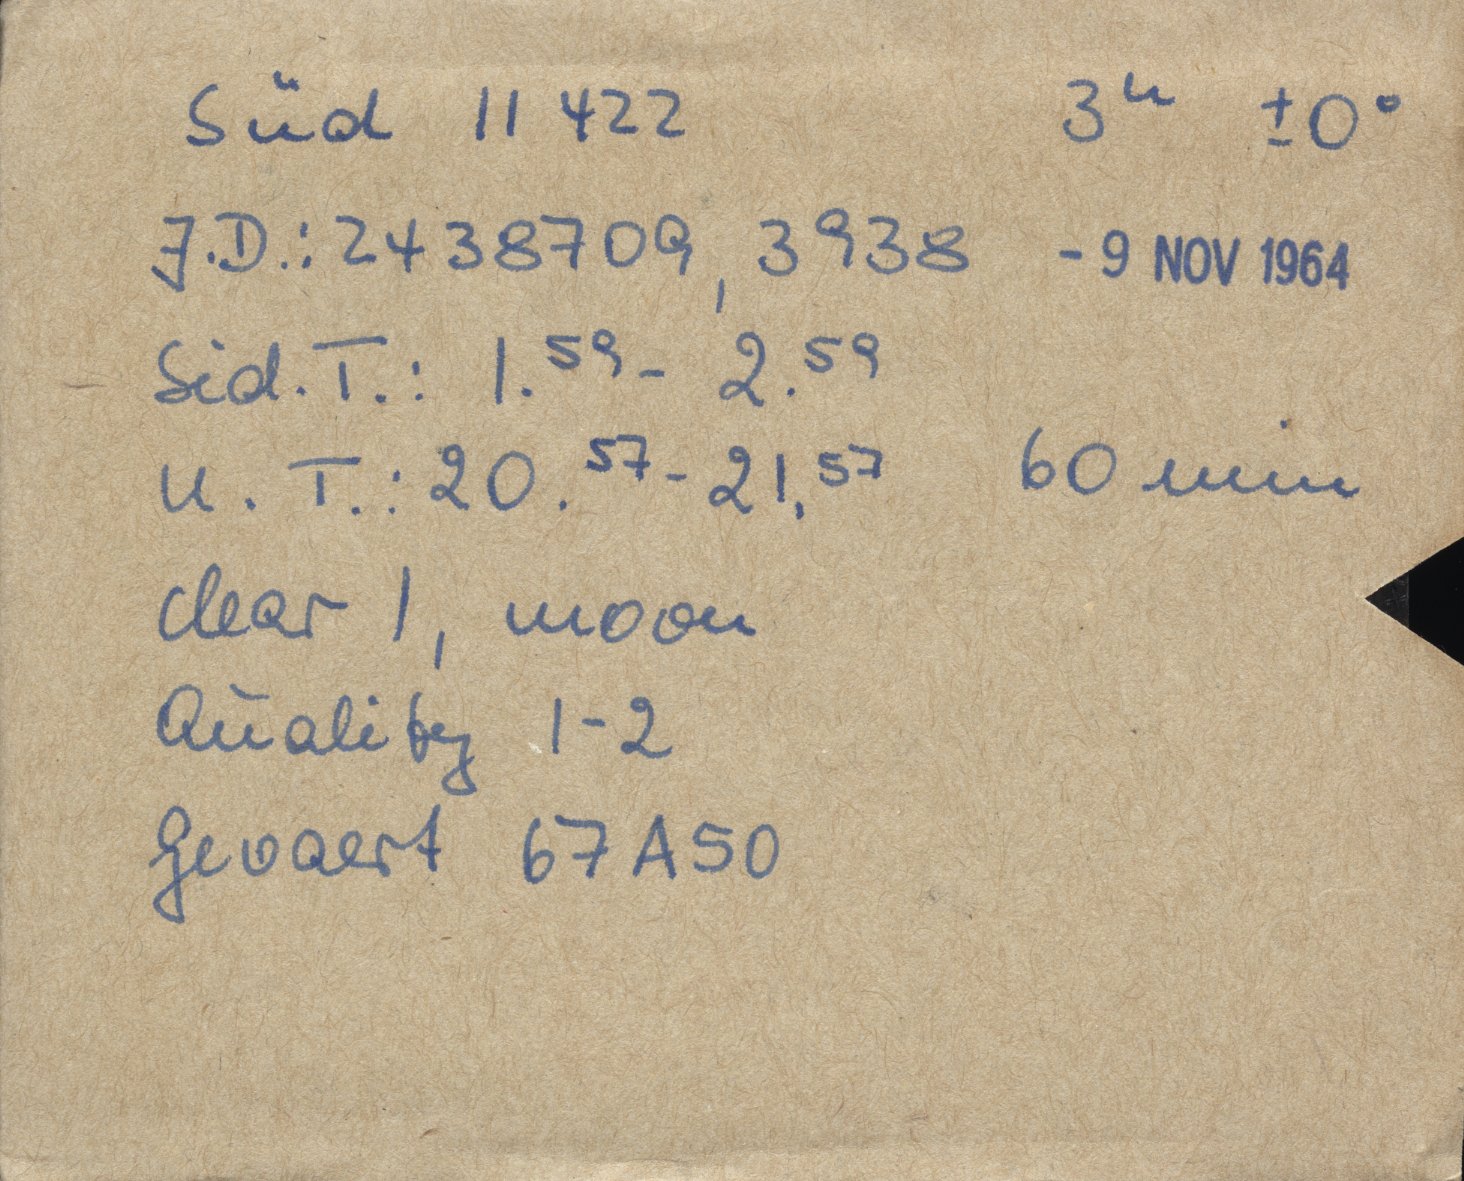 Süd 11 422 3ʰ ±0°
J.D.: 2438709,3938 -9 NOV 1964
Sid.T.: 1.⁵⁹- 2.⁵⁹
U.T.: 20.⁵⁷- 21.⁵⁷ 60 min
clear 1, moon
Quality 1-2
Gevaert 67A50